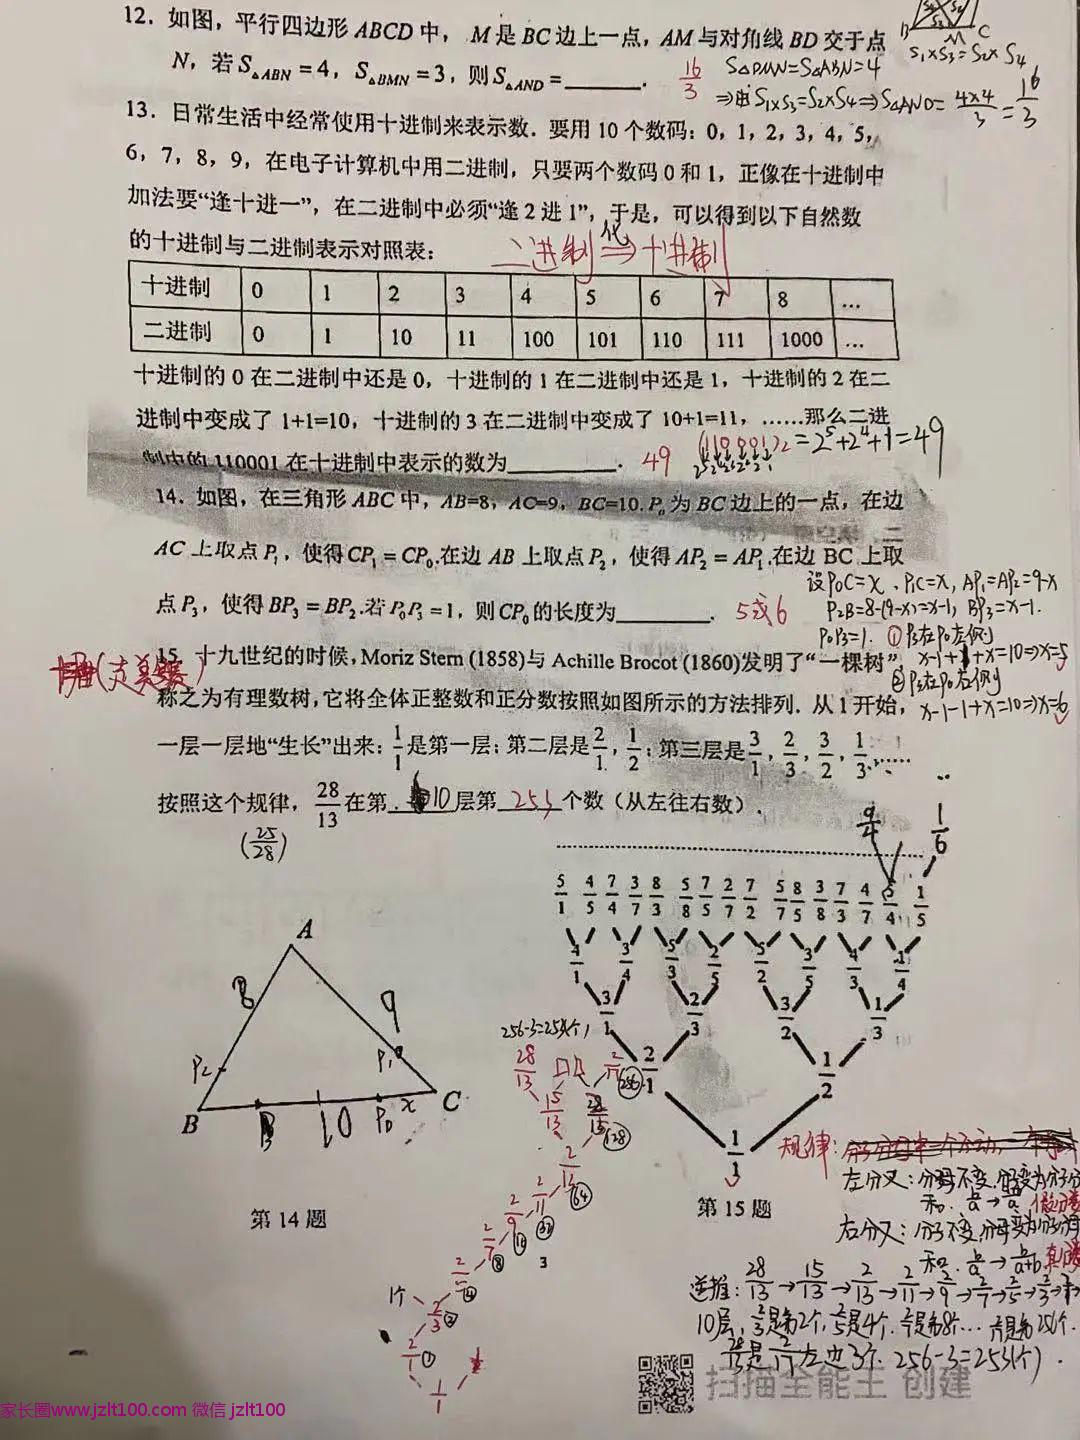 12. 如图，平行四边形 ABCD 中， M 是 BC 边上一点，AM 与对角线 BD 交于点
N，若 S△ABN = 4，S△BMN = 3，则 S△AND = ______.
16/3
B M C
S₁×S₃=S₂×S₄
S△DMN=S△ABN=4
⇒由S₁×S₃=S₂×S₄⇒S△AND=4×4/3=16/3
13. 日常生活中经常使用十进制来表示数．要用 10 个数码：0，1，2，3，4，5，
6，7，8，9，在电子计算机中用二进制，只要两个数码 0 和 1，正像在十进制中
加法要“逢十进一”，在二进制中必须“逢 2 进 1”，于是，可以得到以下自然数
的十进制与二进制表示对照表：
二进制⇒十进制
化
十进制 0 1 2 3 4 5 6 7 8 …
二进制 0 1 10 11 100 101 110 111 1000 …
十进制的 0 在二进制中还是 0，十进制的 1 在二进制中还是 1，十进制的 2 在二
进制中变成了 1+1=10，十进制的 3 在二进制中变成了 10+1=11，……那么二进
制中的 110001 在十进制中表示的数为__________.
49
(110001)₂=2⁵+2⁴+1=49
14. 如图，在三角形 ABC 中，AB=8，AC=9，BC=10. P₀ 为 BC 边上的一点，在边
AC 上取点 P₁，使得 CP₁ = CP₀.在边 AB 上取点 P₂，使得 AP₂ = AP₁.在边 BC 上取
点 P₃，使得 BP₃ = BP₂.若 P₀P₃ = 1，则 CP₀ 的长度为________.
5或6
设P₀C=x、P₁C=x, AP₁=AP₂=9-x
P₂B=8-(9-x)=x-1, BP₃=x-1.
P₀P₃=1. ①P₃在P₀左侧
x-1+1+x=10⇒x=5
②P₃在P₀右侧
x-1-1+x=10⇒x=6
15. 十九世纪的时候，Moriz Stern (1858)与 Achille Brocot (1860)发明了“一棵树”，
称之为有理数树，它将全体正整数和正分数按照如图所示的方法排列．从 1 开始，
一层一层地“生长”出来：1/1 是第一层；第二层是 2/1，1/2；第三层是 3/1，2/3，3/2，1/3，……
按照这个规律，28/13 在第 10 层第 253 个数（从左往右数）．
(25/28)
9/4 1/6
5/1 4/5 7/4 3/7 8/3 5/8 7/5 2/7 7/2 5/7 8/5 3/8 7/3 4/7 5/4 1/5
4/1 3/4 5/3 2/5 5/2 3/5 4/3 1/4
3/1 2/3 3/2 1/3
2/1 1/2
1/1
A
8 9
P₂ P₁
B P₃ 10 P₀ x C
第 14 题
第 15 题
256-3=253(个)
28/13
15/13 28/15 128
2/13 64
2/11 32
2/9 16
2/7 8
2/5 4
1个 2/3 2
2/1 1
规律：
左分叉：分母不变,分子变为分子分母
右分叉：分子不变,分母变为分子分母
和. b/a→b/a+b
逆推：28/13→15/13→2/13→2/11→2/9→2/7→2/5→2/3→2/1
10层, 2/3是第2个, 2/5是4个, 2/7是第8个… 2/17是第256个.
28/13是2/17左边3个. 256-3=253(个).
扫描全能王 创建
家长圈www.jzlt100.com 微信 jzlt100